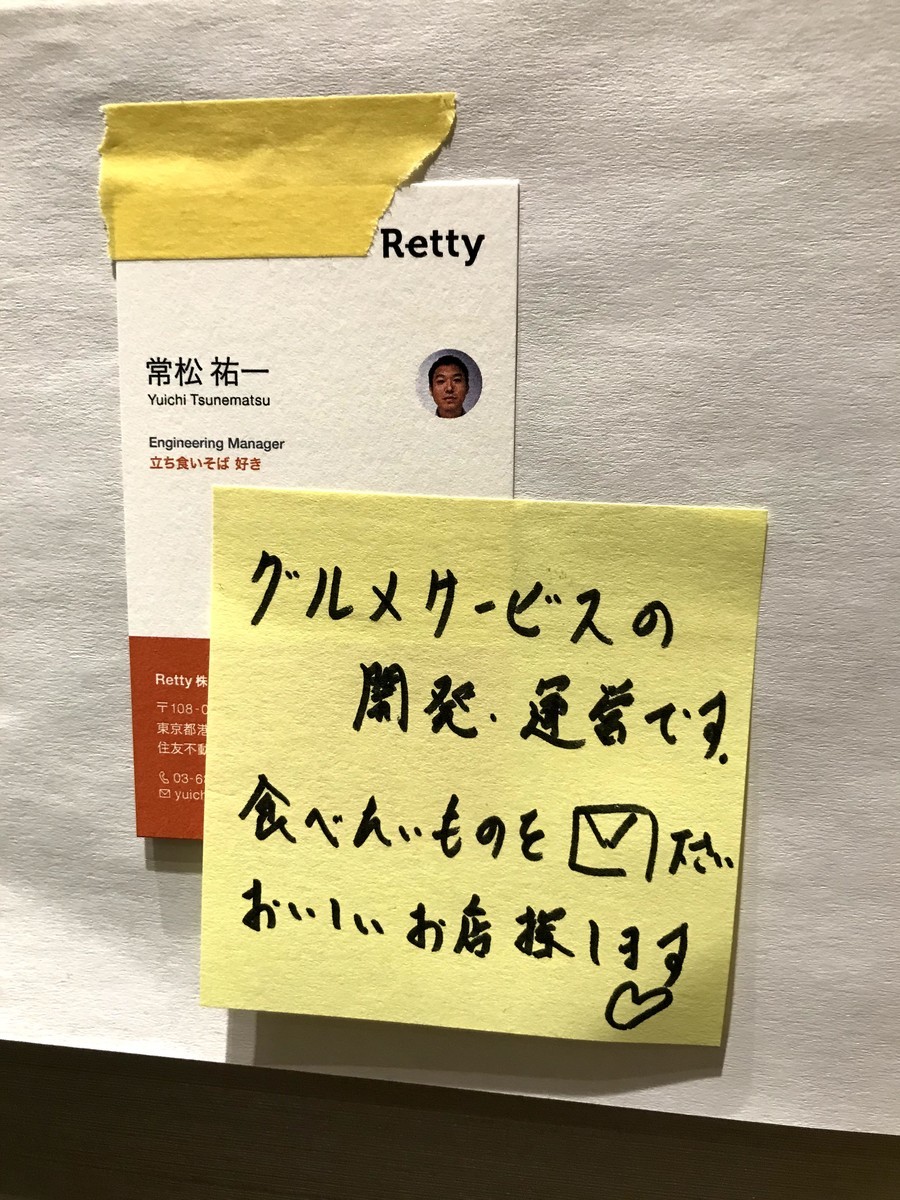 Retty
常松 祐一
Yuichi Tsunematsu
Engineering Manager
立ち食いそば 好き
Retty 株
〒108-0
東京都港
住友不動
03-68
yuich
グルメサービスの
開発・運営です.
食べたいものを 下さい
おいしいお店探します